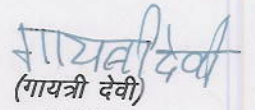 गायत्री देवी
(गायत्री देवी)